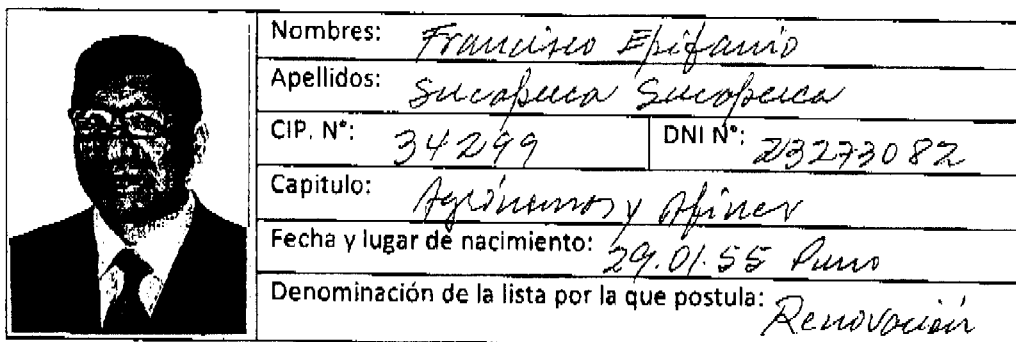 Nombres: Francisco Epifanio
Apellidos: Sucapuca Sucapuca
CIP. N°: 34299 DNI N°: 23273082
Capitulo: Agrónomos y Afines
Fecha y lugar de nacimiento: 29.01.55 Puno
Denominación de la lista por la que postula: Renovación